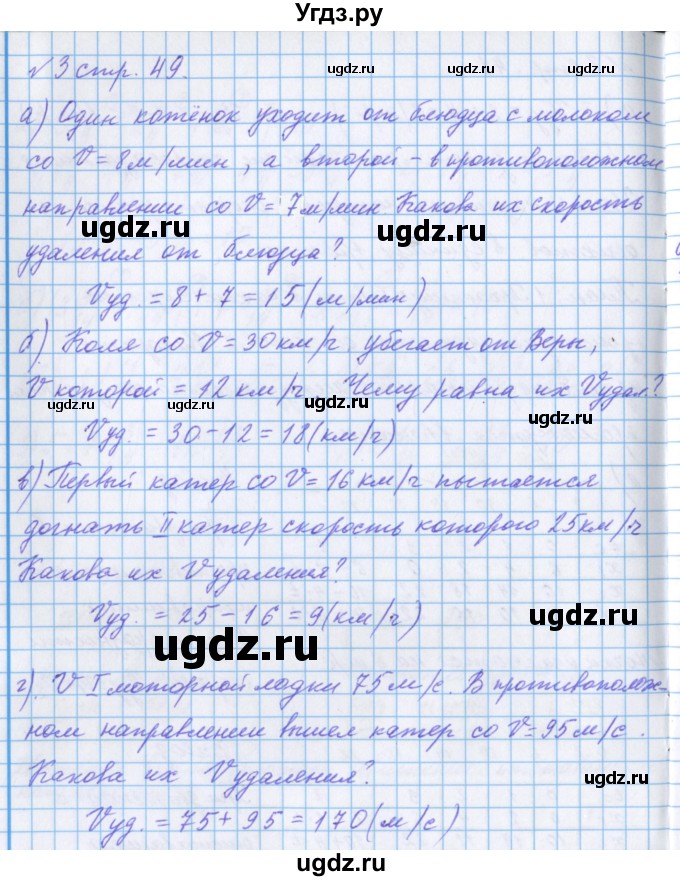 Угдз.ру
№3 стр. 49.
ugdz.ru ugdz.ru
а) Один котёнок уходит от блюдца с молоком
со V = 8 м/мин, а второй – в противоположном
направлении со V = 7 м/мин. Какова их скорость
ugdz.ru ugdz.ru
удаления от блюдца?
Vуд. = 8 + 7 = 15 (м/мин)
б) Коля со V = 30 км/ч убегает от Веры,
V которой = 12 км/ч. Чему равна их Vудал?
ugdz.ru ugdz.ru ugdz.ru
Vуд. = 30 – 12 = 18 (км/ч)
в) Первый катер со V = 16 км/ч пытается
догнать II катер скорость которого 25 км/ч
Какова их Vудаления?
Vуд. = 25 – 16 = 9 (км/ч)
ugdz.ru ugdz.ru
г). V I моторной лодки 75 м/с. В противополож-
ном направлении вышел катер со V = 95 м/с.
Какова их Vудаления?
ugdz.ru ugdz.ru
Vуд. = 75 + 95 = 170 (м/с)
ugdz.ru